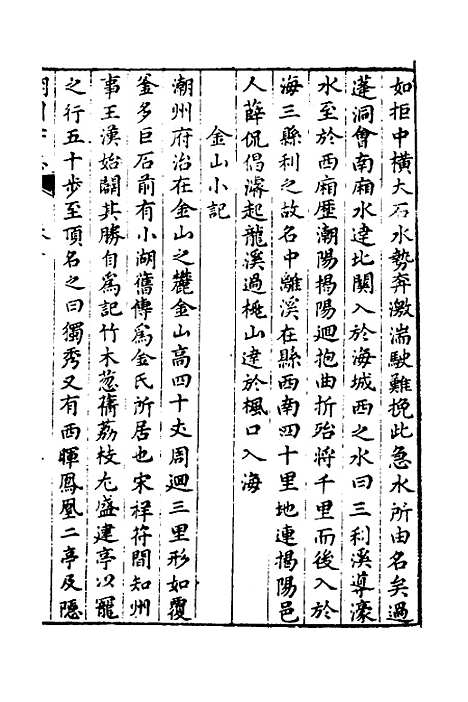 如拒中橫大石水勢奔激湍駛難挽此急水所由名矣過
蓬洞會南廂水達北關入於海城西之水曰三利溪導濠
水至於西廂歷潮陽揭陽迴抱曲折殆將千里而後入於
海三縣利之故名中離溪在縣西南四十里地連揭陽邑
人薛侃倡濬起龍溪過桃山達於楓口入海
金山小記
潮州府治在金山之麓金山高四十丈周迴三里形如覆
釜多巨石前有小湖舊傳為金氏所居也宋祥符間知州
事王漢始闢其勝自為記竹木葱蒨荔枝尤盛建亭以寵
之行五十步至頂名之曰獨秀又有西暉鳳凰二亭及隱